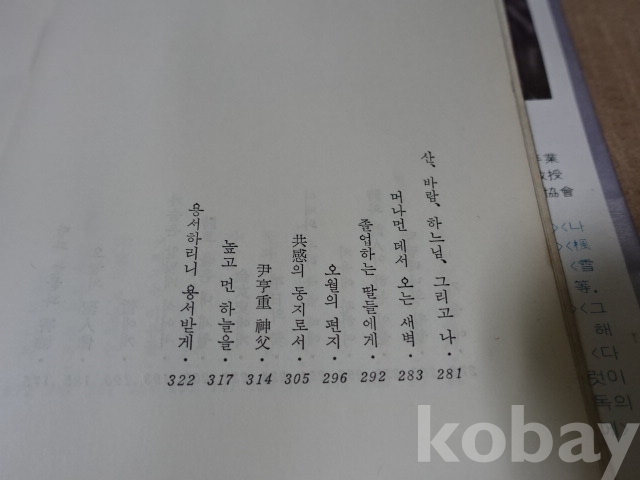 산, 바람, 하느님, 그리고 나 • 281
머나먼 데서 오는 새벽 • 283
졸업하는 딸들에게 • 292
오월의 편지 • 296
共感의 동지로서 • 305
尹亨重 神父 • 314
높고 먼 하늘을 • 317
용서하리니 용서받게 • 322
業
教授
協會
<나
<極
<雪
等.
<그
해
<다
럿이
독의
kobay